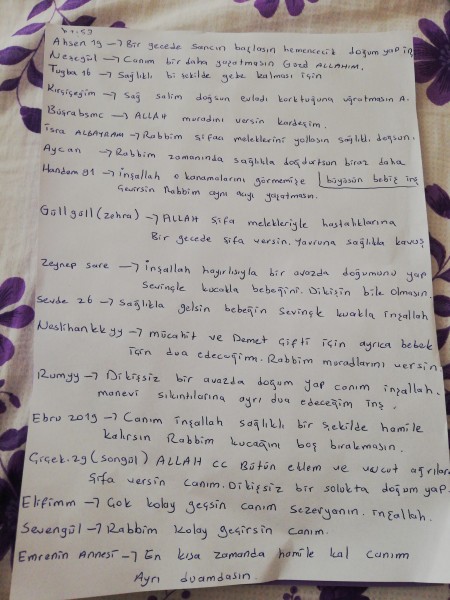 Ahsen 19 → Bir gecede sancın başlasın hemencecik doğum yap inş
Nezegül → Canım bir daha yaşatmasın Güzel ALLAHIM.
Tuğba 16 → Sağlıklı bi şekilde gebe kalması için
Kırçiçeğim → Sağ salim doğsun evladı korktuğuna uğratmasın A.
Büşrabsmc → ALLAH muradını versin kardeşim.
isra ALBAYRAM → Rabbim şifaa meleklerini yollasın sağlıklı doğsun.
Aycan → Rabbim zamanında sağlıkla doğdurtsun biraz daha
büyüsün bebiş inş
Handem 91 → inşallah o kanamalarını görmemişe
Çevirsin Rabbim aynı acıyı yaşatmasın.
Güll güll (zehra) → ALLAH Şifa melekleriyle hastalıklarına
Bir gecede şifa versin. Yavruna sağlıkla kavuş
Zeynep sare → inşallah hayırlısıyla bir avazda doğumunu yap
Sevinçle kucakla bebeğini. Dikişin bile olmasın.
Sevde 26 → Sağlıkla gelsin bebeğin Sevinçle kucakla inşallah
Neslihankkyy → mücahit ve Demet Çifti için ayrıca bebek
için dua edeceğim. Rabbim muradlarını versin.
Rumyy → Dikişsiz bir avazda doğum yap canım inşallah.
manevi sıkıntılarına ayrı dua edeceğim inş.
Ebru 2019 → Canım inşallah sağlıklı bir şekilde hamile
kalırsın Rabbim kucağını boş bırakmasın.
Çiçek.29 (songül) ALLAH CC Bütün eklem ve vücut ağrılarına
Şifa versin canım. Dikişsiz bir solukta doğum yap.
Elifimm → Çok kolay geçsin canım Sezeryanın. inşallah.
Sevengül → Rabbim Kolay geçirsin canım.
Emrenin Annesi → En kısa zamanda hamile kal canım
Ayrı duamdasın.